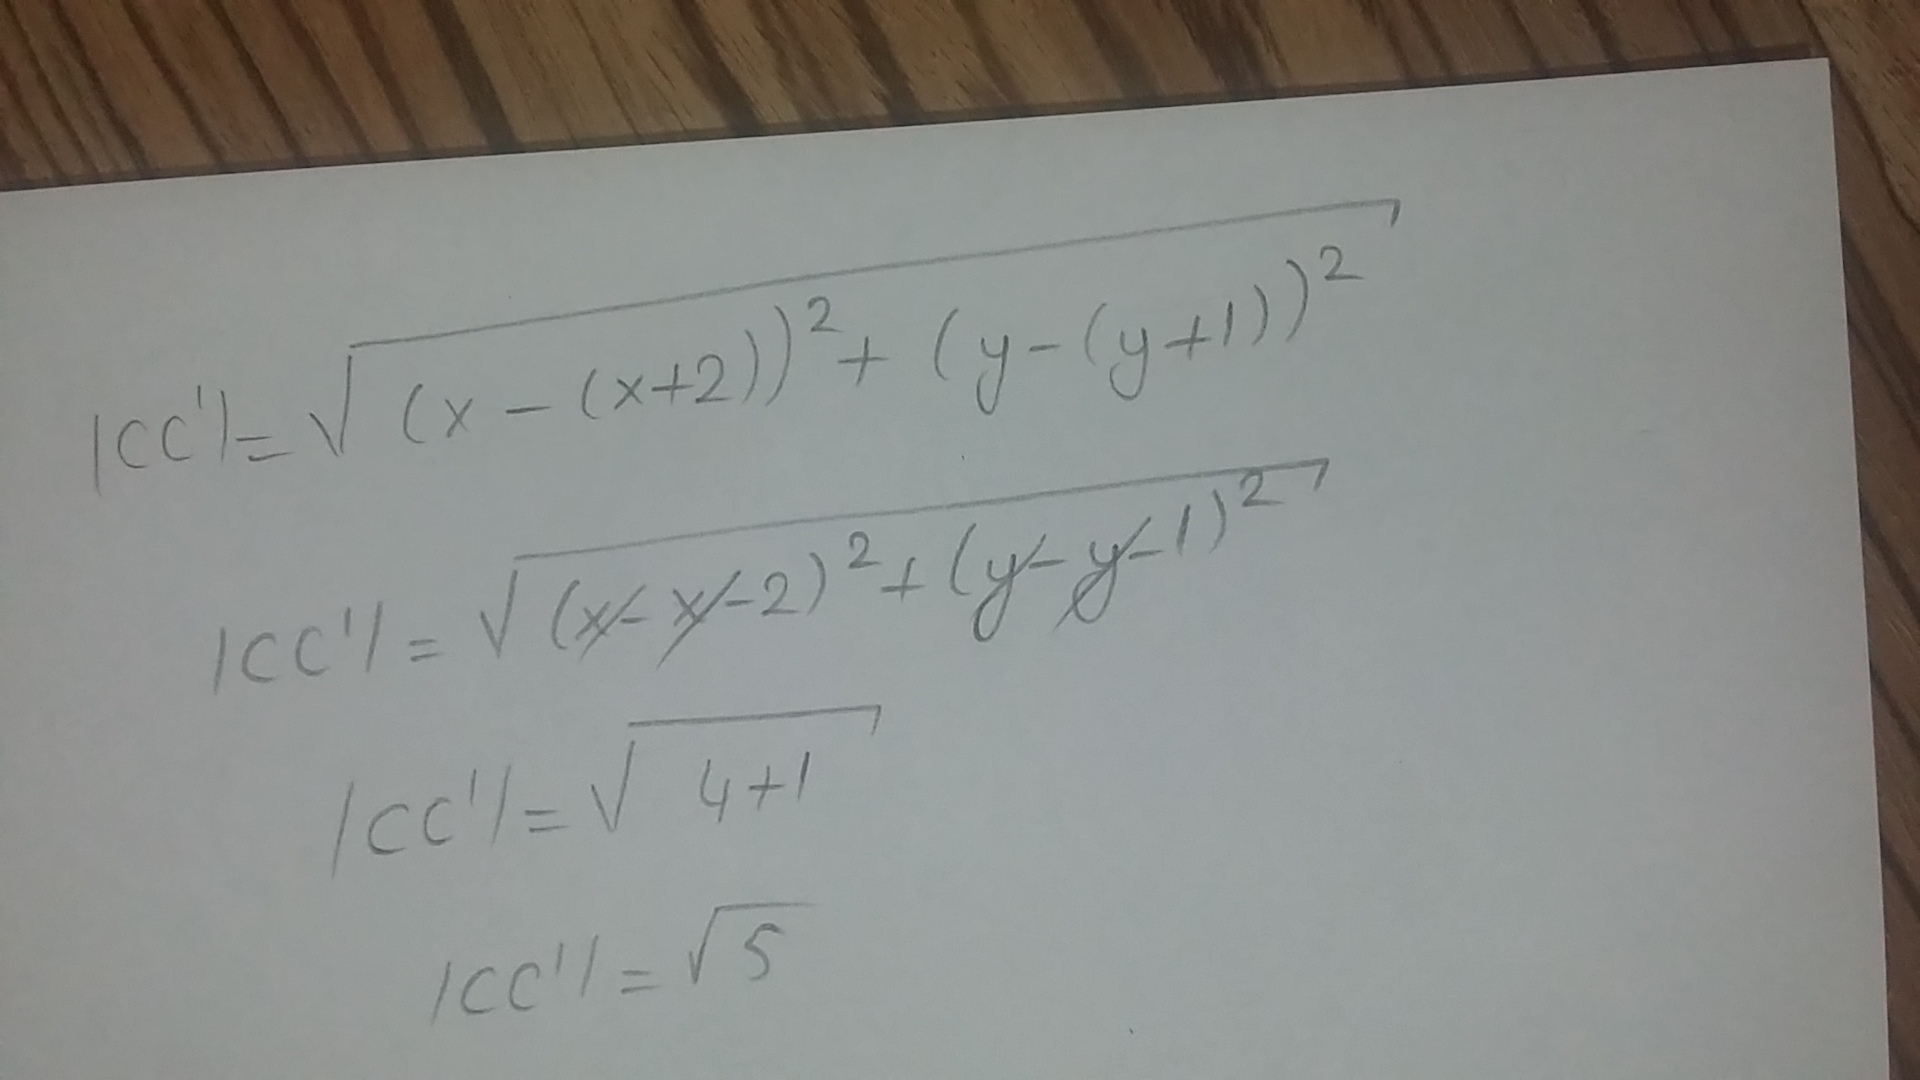 |CC'|= √(x-(x+2))²+(y-(y+1))²
|CC'|= √(x-x-2)²+(y-y-1)²
|CC'|= √4+1
|CC'|= √5